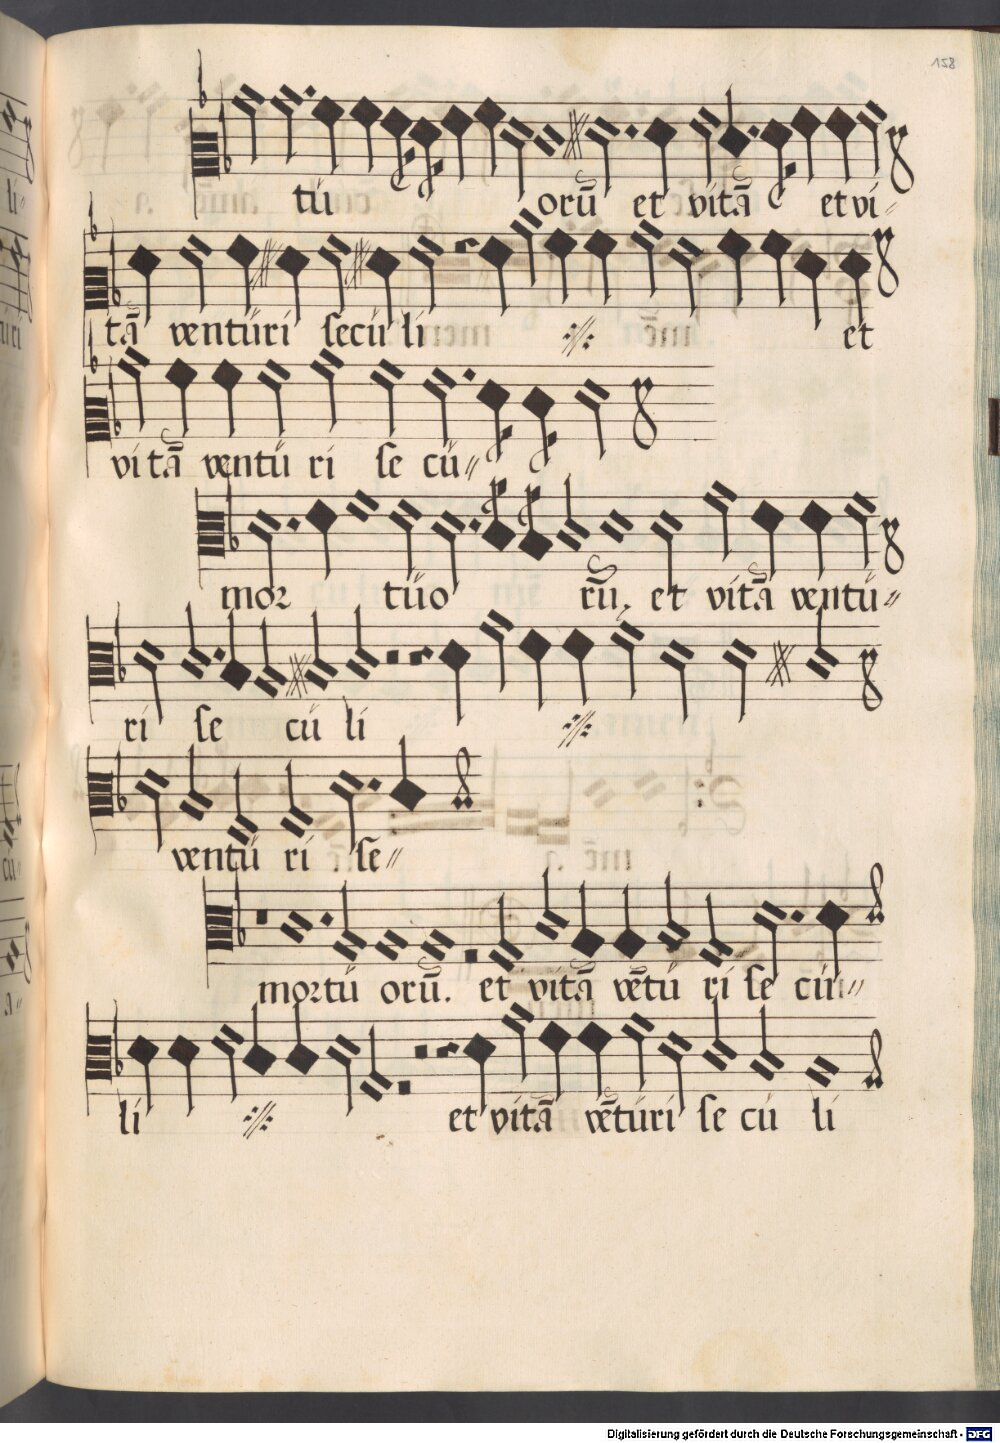 158
tu orũ et vitã et vi-
tã venturi seculi ·//· et
vi tã ventu ri se cu-
mor tuo rũ. et vitã ventu-
ri se cu li ·//·
ventu ri se-
mortu orũ. et vitã vẽtu ri se cu-
li ·//· et vitã vẽturi se cu li
Digitalisierung gefördert durch die Deutsche Forschungsgemeinschaft - DFG